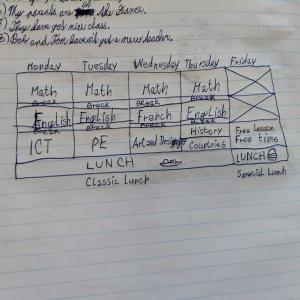 6) My parents are the France.
7) They have got nice class.
8) Bob and Tom haven't got a new teacher.
Monday Tuesday Wednesday Thursday Friday
Math Math Math Math
Break Break Break Break
English English French English
Break Break Break Break
ICT PE Art and Design History Countries Free Lesson Free time
LUNCH LUNCH
Classic Lunch Special Lunch